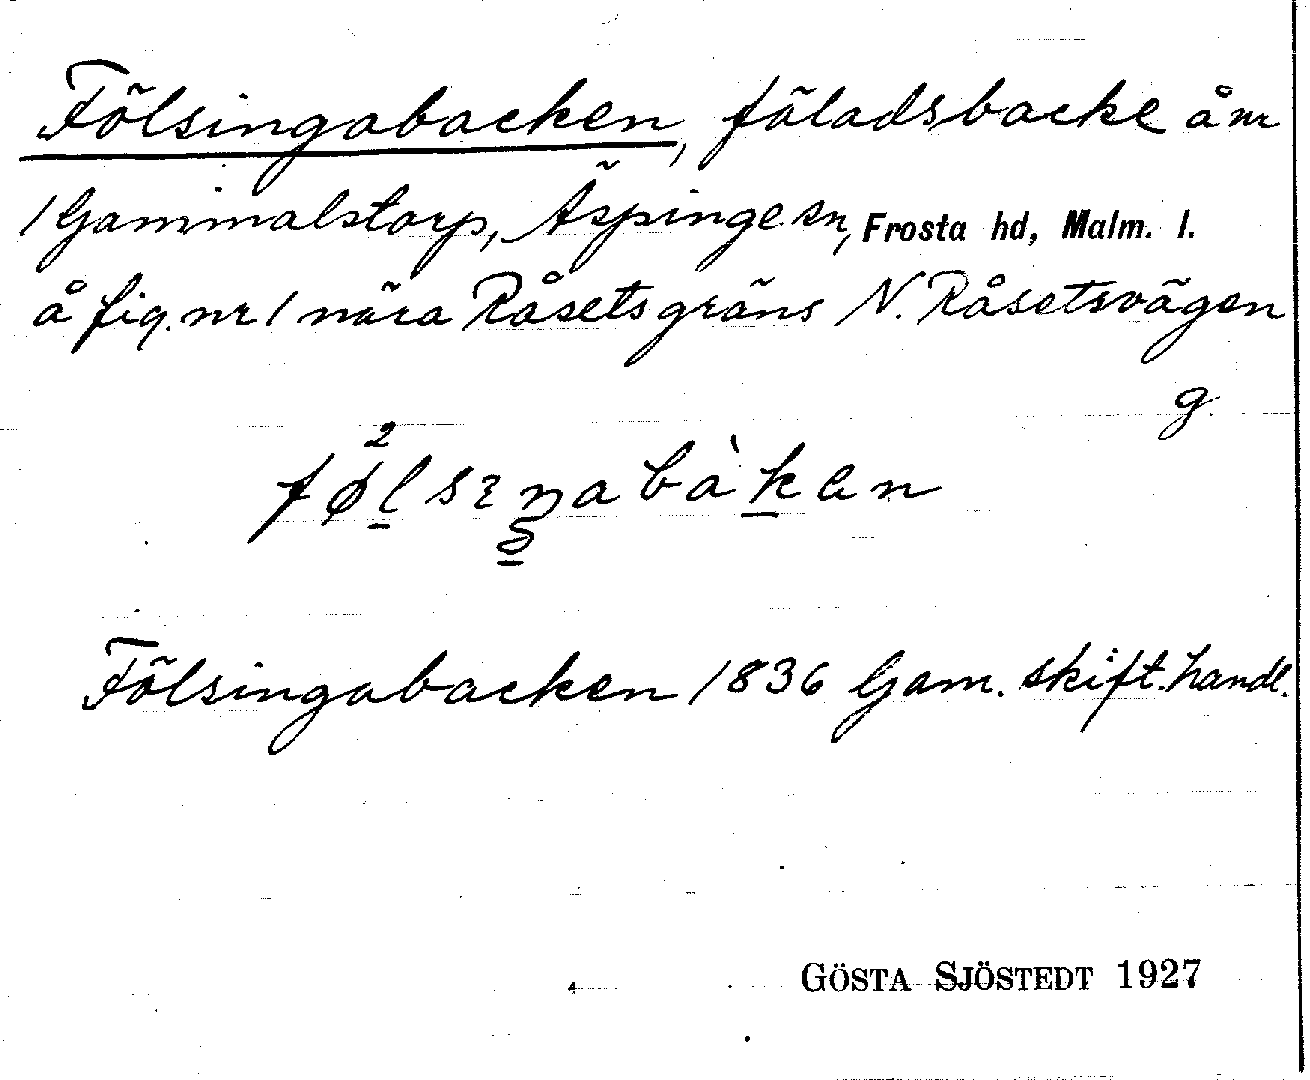 Fölsingabacken, fäladsbacke å nr
1 Gammalstorp, Äspinge sn, Frosta hd, Malm. l.
å fig. nr 1 nära Råsets gräns N. Råsetsvägen
g.
Fölsingabacken 1836 Gam. skift. handl.
GÖSTA SJÖSTEDT 1927